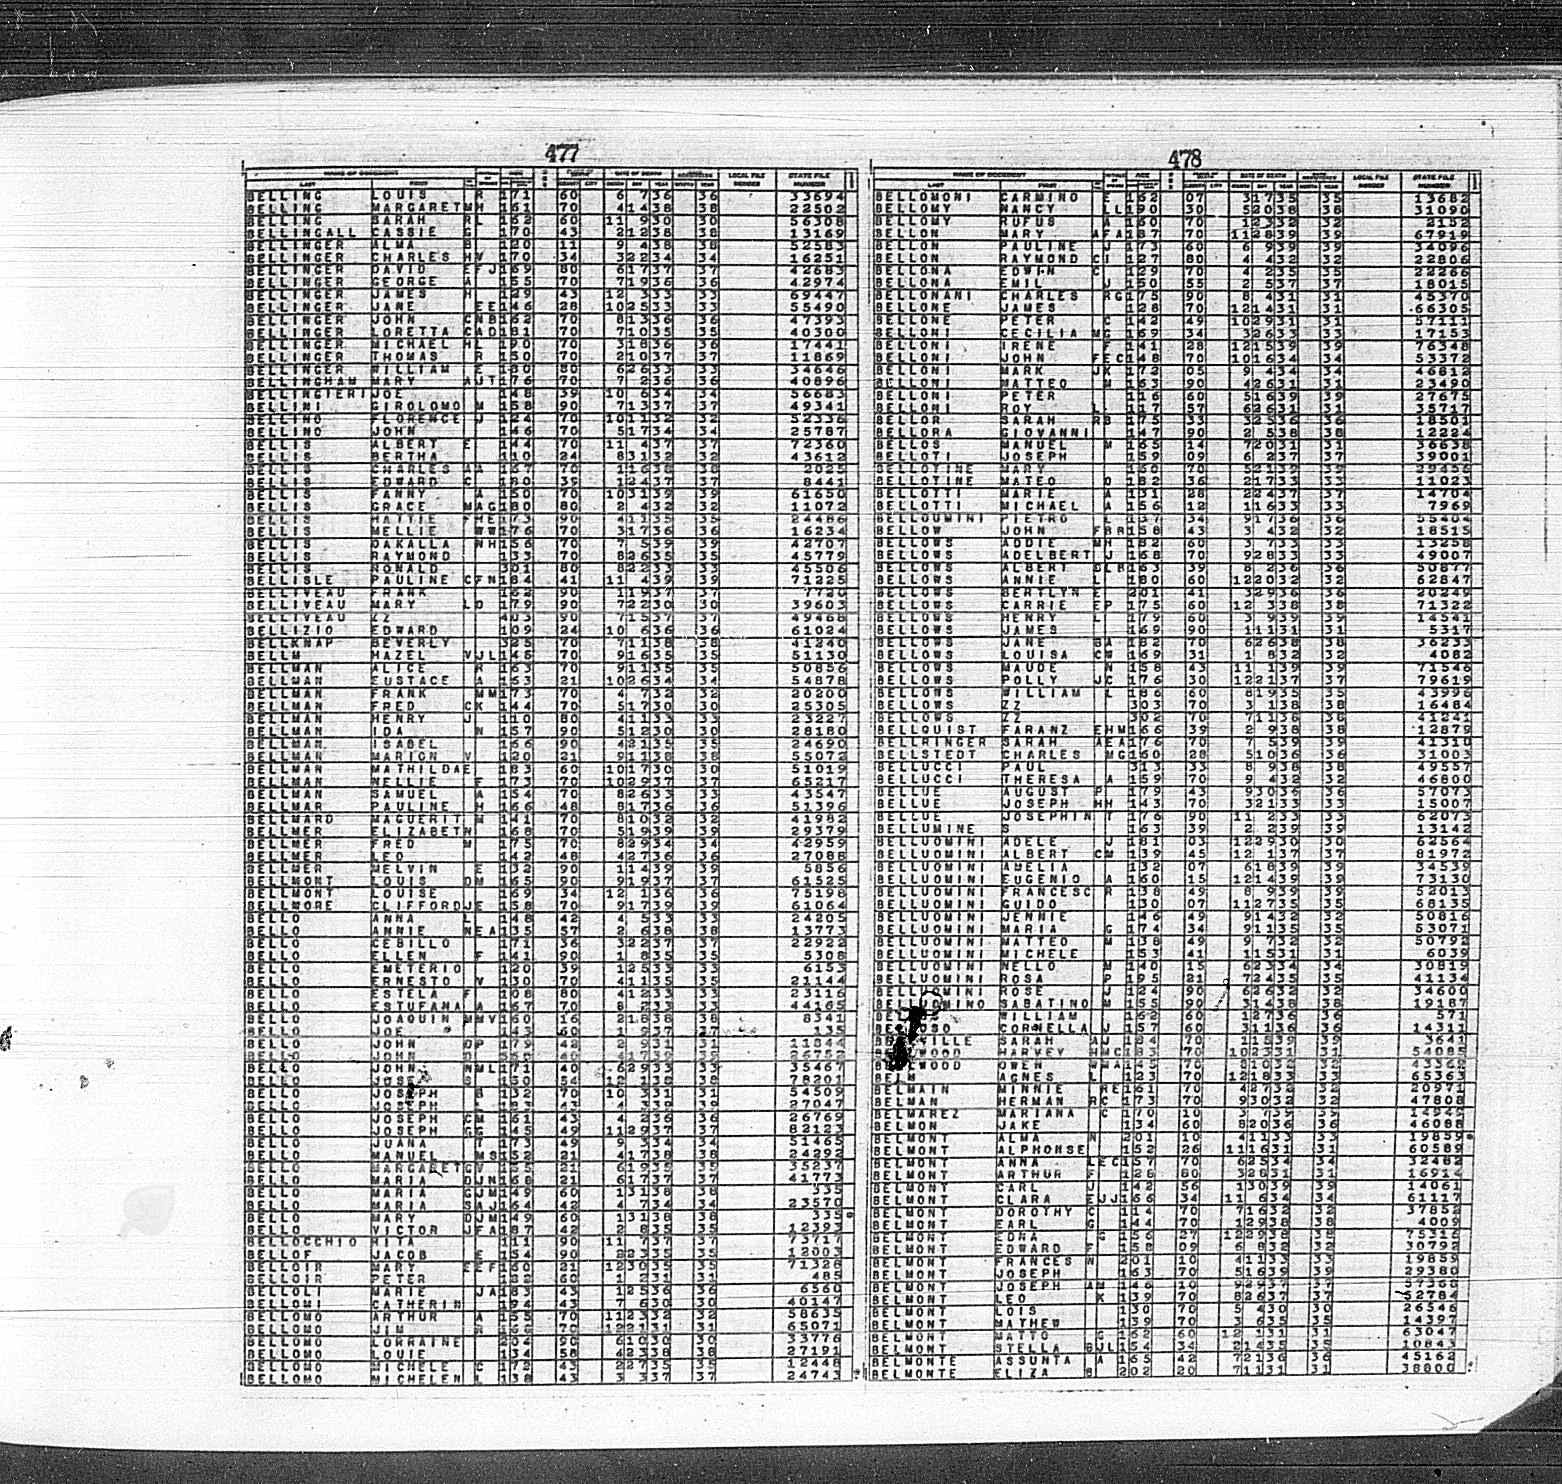 477
NAME OF DECEDENT DATE OF DEATH LOCAL FILE NUMBER STATE FILE NUMBER
LAST FIRST
BELLING LOUIS R 171 60 6 736 36 33694
BELLING MARGARET MH 161 70 41438 38 22562
BELLING SARAH RL 162 60 11 930 30 56308
BELLINGALL CASSIE G 170 43 21238 38 13169
BELLINGER ALMA B 120 11 9 438 38 52583
BELLINGER CHARLES HV 170 34 32234 34 16251
BELLINGER DAVID EFJ 169 80 61737 37 42683
BELLINGER GEORGE A 155 70 71936 36 42974
BELLINGER JAMES H 129 43 12 333 33 69447
BELLINGER JANE EE 146 28 102533 33 55490
BELLINGER JOHN CNB 162 70 81336 36 47393
BELLINGER LORETTA CAD 181 70 71035 35 40300
BELLINGER MICHAEL HL 190 70 31836 36 17441
BELLINGER THOMAS R 150 70 21037 37 11869
BELLINGER WILLIAM E 180 80 62633 33 34646
BELLINGHAM MARY AJT 176 70 7 236 36 40896
BELLINGIERI JOE 148 39 10 634 34 56683
BELLINI GIROLOMO M 158 90 71337 37 49341
BELLINO FLORENCE J 124 70 101332 32 52336
BELLINO JOHN 146 70 51734 34 25787
BELLIS ALBERT E 144 70 11 437 37 72360
BELLIS BERTHA 110 24 83132 32 43612
BELLIS CHARLES AA 167 70 11638 38 2025
BELLIS EDWARD C 180 39 12437 37 8441
BELLIS FANNY A 150 70 103139 39 61650
BELLIS GRACE MAG 180 80 2 432 32 11072
BELLIS HATTIE 173 90 41135 35 24486
BELLIS MELLIE WW 176 70 31736 36 16234
BELLIS OAKALLA WH 156 70 7 539 39 42707
BELLIS RAYMOND 133 70 82635 35 45779
BELLIS RONALD 301 80 82233 33 45506
BELLISLE PAULINE CFN 184 41 11 439 39 71225
BELLIVEAU FRANK 162 90 11937 37 7720
BELLIVEAU MARY LD 179 90 72230 30 39603
BELLIVEAU ZZ 403 90 71537 37 49468
BELLIZIO EDWARD 109 24 10 636 36 61024
BELLKNAP BEVERLY 328 70 71138 38 41240
BELLM HAZEL VJL 145 70 91635 35 51130
BELLMAN ALICE R 163 70 91135 35 50856
BELLMAN EUSTACE A 163 21 102634 34 54878
BELLMAN FRANK MM 173 70 4 732 32 20200
BELLMAN FRED CK 144 70 51730 30 25305
BELLMAN HENRY J 110 80 41133 33 23227
BELLMAN IDA N 157 90 51230 30 28180
BELLMAN ISABEL 166 90 42135 35 24690
BELLMAN MARION V 120 21 91138 38 55072
BELLMAN MATHILDA E 183 60 101730 30 51019
BELLMAN NELLIE F 173 70 102937 37 65217
BELLMAN SAMUEL A 154 70 82633 33 43547
BELLMAR PAULINE H 166 48 81736 36 51396
BELLMARD MAGUERIT M 141 70 81032 32 41982
BELLMER ELIZABETH 168 70 51939 39 29379
BELLMER FRED M 175 70 82934 34 42959
BELLMER LEO 142 48 42736 36 27088
BELLMER MELVIN E 132 90 11439 39 5856
BELLMONT LOUIS DM 165 90 91937 37 61525
BELLMONT LOUISE 169 34 12 136 36 75198
BELLMORE CLIFFORD JE 158 70 91739 39 61064
BELLO ANNA L 148 42 4 533 33 24205
BELLO ANNIE NEA 135 57 2 638 38 13773
BELLO CEBILLO 171 36 32237 37 22922
BELLO ELLEN F 141 90 1 835 35 5308
BELLO EMETERIO 120 39 12533 33 6153
BELLO ERNESTO V 130 70 41135 35 21144
BELLO ESTELA F 108 80 41233 33 23116
BELLO ESTUFANA A 167 70 8 233 33 44165
BELLO JOAQUIN MMV 160 16 21838 38 8341
BELLO JOE 143 60 1 937 37 135
BELLO JOHN OP 179 42 2 931 31 11844
BELLO JOHN 40 41739 39 26752
BELLO JOHN NML 171 40 62933 33 35467
BELLO JOSEPH S 150 54 12 138 38 78201
BELLO JOSEPH B 132 70 10 331 31 54509
BELLO JOSEPH 43 27047
BELLO JOSEPH CM 161 43 4 236 36 26769
BELLO JOSEPH GG 145 49 112937 37 82123
BELLO JUANA T 173 49 9 334 34 51465
BELLO MANUEL MS 152 21 41738 38 24292
BELLO MARGARET GV 155 21 61935 35 35237
BELLO MARIA DJN 168 21 61737 37 41773
BELLO MARIA GJM 149 60 13138 38 335
BELLO MARIA SAJ 164 42 4 734 34 23570
BELLO MARY DJM 149 60 13138 38 335
BELLO VICTOR JFA 187 42 2 835 35 12393
BELLOCCHIO RITA 111 90 11 737 37 73717
BELLOF JACOB E 154 90 22335 35 12003
BELLOIR MARY EEF 160 21 123035 35 71328
BELLOIR PETER 182 60 1 231 31 485
BELLOLI MARIE JA 183 43 12536 36 6560
BELLOMI CATHERIN 194 43 7 630 30 40147
BELLOMO ARTHUR A 155 70 112332 32 58635
BELLOMO JIM 70 122131 31 65071
BELLOMO LORRAINE 204 90 61030 30 33776
BELLOMO LOUIE 134 58 42338 38 27191
BELLOMO MICHELE C 172 43 22735 35 12448
BELLOMO MICHELEN L 138 43 3 337 37 24743
478
NAME OF DECEDENT AGE DATE OF DEATH LOCAL FILE NUMBER STATE FILE NUMBER
LAST FIRST
BELLOMONI CARMINO E 162 07 31735 35 13682
BELLOMY NANCY LL 190 30 52038 38 31090
BELLOMY RUFUS A 160 70 12332 32 2152
BELLON MARY AFA 187 70 112839 39 67919
BELLON PAULINE J 173 60 6 939 39 34096
BELLON RAYMOND CI 127 80 4 432 32 22806
BELLONA EDWIN C 129 70 4 235 35 22266
BELLONA EMIL J 150 55 2 537 37 18015
BELLONANI CHARLES RG 175 90 8 431 31 45370
BELLONE JAMES 128 70 121431 31 66305
BELLONE PETER C 142 49 102931 31 57111
BELLONI CECILIA MG 169 34 32633 33 17153
BELLONI IRENE F 141 28 121539 39 76348
BELLONI JOHN FEC 148 70 101634 34 53372
BELLONI MARK JK 172 05 9 434 34 46812
BELLONI MATTEO M 163 90 42631 31 23490
BELLONI PETER 116 60 51639 39 27675
BELLONI ROY L 117 57 62631 31 35717
BELLOR SARAH RB 175 33 32336 36 18501
BELLORA GIOVANNI 147 90 2 538 38 12224
BELLOS MANUEL M 165 14 72031 31 36638
BELLOTI JOSEPH 159 09 6 237 37 39001
BELLOTINE MARY 160 70 52139 39 29456
BELLOTINE MATEO O 182 36 21733 33 11023
BELLOTTI MARIE A 131 28 22437 37 14704
BELLOTTI MICHAEL A 156 12 11633 33 7969
BELLOUMINI PIETRO L 137 34 91736 36 55404
BELLOW JOHN FRR 158 43 3 432 32 18515
BELLOWS ADDIE MH 182 60 3 733 33 13258
BELLOWS ADELBERT J 168 70 92833 33 49007
BELLOWS ALBERT DLR 163 39 8 236 36 50877
BELLOWS ANNIE L 180 60 122032 32 62847
BELLOWS BERTLYN E 201 41 32936 36 20249
BELLOWS CARRIE EP 175 60 12 338 38 71322
BELLOWS HENRY L 179 60 3 939 39 14541
BELLOWS JAMES 169 90 11131 31 5317
BELLOWS JANE BA 187 70 62638 38 36233
BELLOWS LOUISA CW 169 31 1 832 32 4082
BELLOWS MAUDE N 158 43 11 139 39 71546
BELLOWS POLLY JC 176 30 122137 37 79619
BELLOWS WILLIAM L 186 60 81935 35 43996
BELLOWS ZZ 303 70 3 138 38 16484
BELLOWS ZZ 302 70 71138 38 41241
BELLQUIST FARANZ EHM 166 39 2 938 38 12879
BELLRINGER SARAH AEA 176 70 7 539 39 41310
BELLSTEDT CHARLES MG 160 28 51036 36 31003
BELLUCCI PAUL 313 33 8 938 38 49557
BELLUCCI THERESA A 159 70 9 432 32 46800
BELLUE AUGUST P 179 43 93036 36 57073
BELLUE JOSEPH HH 143 70 32133 33 15007
BELLUE JOSEPHIN T 176 90 11 233 33 62073
BELLUMINE S 163 39 2 239 39 13142
BELLUOMINI ADELE J 181 03 122930 30 62564
BELLUOMINI ALBERT CM 139 45 12 137 37 81972
BELLUOMINI AMELIA 132 07 61839 39 34539
BELLUOMINI EUGENIO A 160 15 121439 39 73130
BELLUOMINI FRANCESC R 138 49 8 939 39 52013
BELLUOMINI GUIDO 130 07 112735 35 68135
BELLUOMINI JENNIE 146 49 91432 32 50816
BELLUOMINI MARIA G 174 34 91135 35 53071
BELLUOMINI MATTEO M 138 49 9 732 32 50792
BELLUOMINI MICHELE 153 41 11531 31 6039
BELLUOMINI NELLO M 140 15 62334 34 30819
BELLUOMINI ROSA P 195 21 72435 35 41134
BELLUOMINI ROSE J 124 90 62632 32 34600
BELLUOMINO SABATINO M 155 90 31438 38 19187
WILLIAM 162 60 12736 36 571
CORNELLA J 157 60 31136 36 14311
SARAH AJ 184 70 11539 39 3641
HARVEY HMC 183 70 102331 31 54085
OWEN WMA 70 81033 33 43362
BELM AGNES L 123 70 121833 33 65363
BELMAIN MINNIE RE 161 70 42732 32 20971
BELMAN HERMAN RC 173 70 93032 32 47808
BELMAREZ MARIANA C 170 10 3 739 39 14945
BELMON JAKE 134 60 82036 36 46088
BELMONT ALMA N 201 10 41133 33 19859
BELMONT ALPHONSE 152 26 111631 31 60589
BELMONT ANNA LEC 157 70 62534 34 32482
BELMONT ARTHUR F 128 80 32831 31 16914
BELMONT CARL J 142 56 13039 39 14061
BELMONT CLARA EJJ 166 34 11 634 34 61117
BELMONT DOROTHY C 114 70 71632 32 37852
BELMONT EARL G 144 70 12938 38 4009
BELMONT EDNA G 156 27 122938 38 75315
BELMONT EDWARD F 158 09 6 832 32 30792
BELMONT FRANCES N 201 10 41133 33 19859
BELMONT JOSEPH 163 70 51639 39 29380
BELMONT JOSEPH AM 146 10 92937 37 57368
BELMONT LEO K 139 70 82637 37 52784
BELMONT LOIS 130 70 5 430 30 26546
BELMONT MATHEW 139 70 3 635 35 14397
BELMONT MATTO G 162 60 12 131 31 63047
BELMONT STELLA BJL 154 34 21435 35 10843
BELMONTE ASSUNTA A 165 42 72136 36 45162
BELMONTE ELIZA B 202 20 71131 31 38800